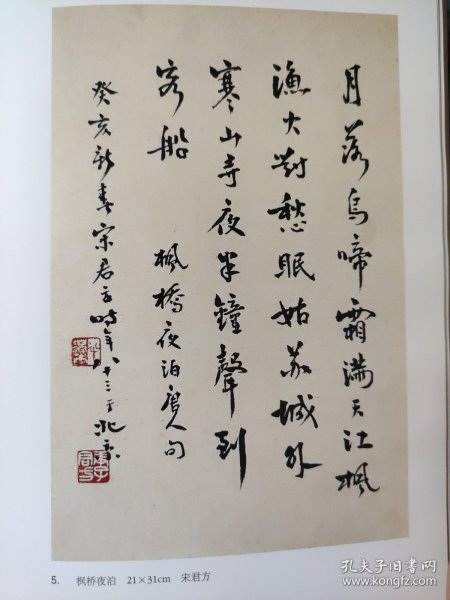 月落烏啼霜满天江楓
漁火對愁眠姑苏城外
寒山寺夜半鐘聲到
客船
楓橋夜泊唐人句
癸亥新春宋君方時年八十三于北京
5. 枫桥夜泊 21×31cm 宋君方
孔夫子旧书网